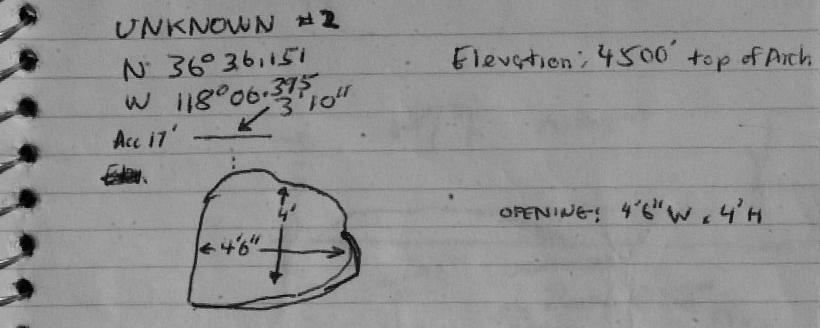 UNKNOWN #2
N 36° 36.151
Elevation: 4500' top of Arch
W 118° 06.395
3'10"
Acc 17'
4'
4'6"
OPENING: 4'6" W x 4' H